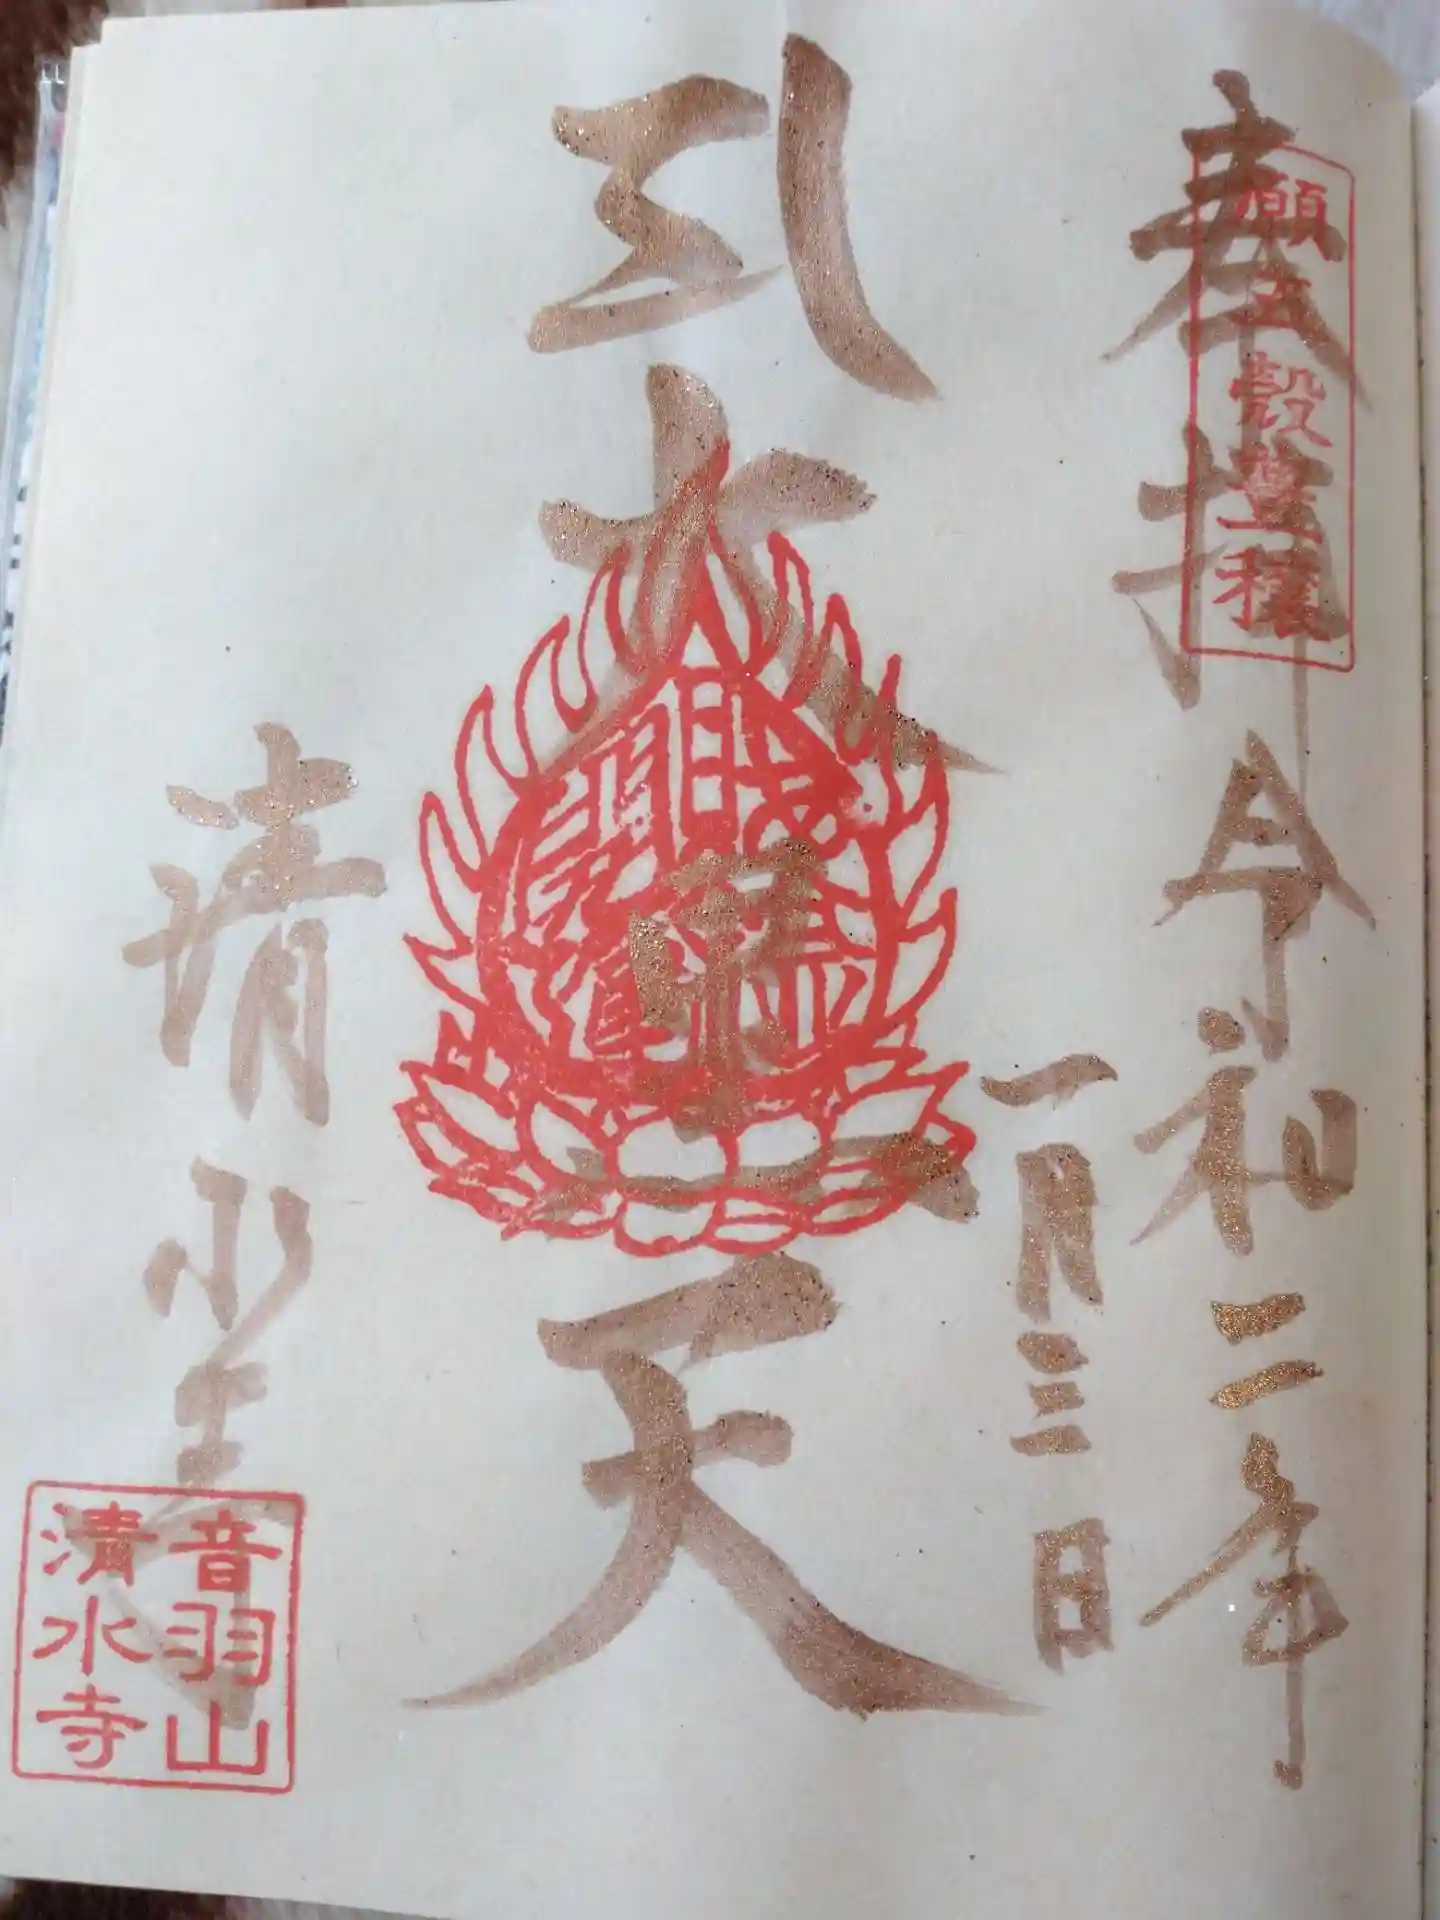 奉拝
願五穀豊穣
令和二年
一月三日
弘大黒天
清水寺
音羽山
清水寺